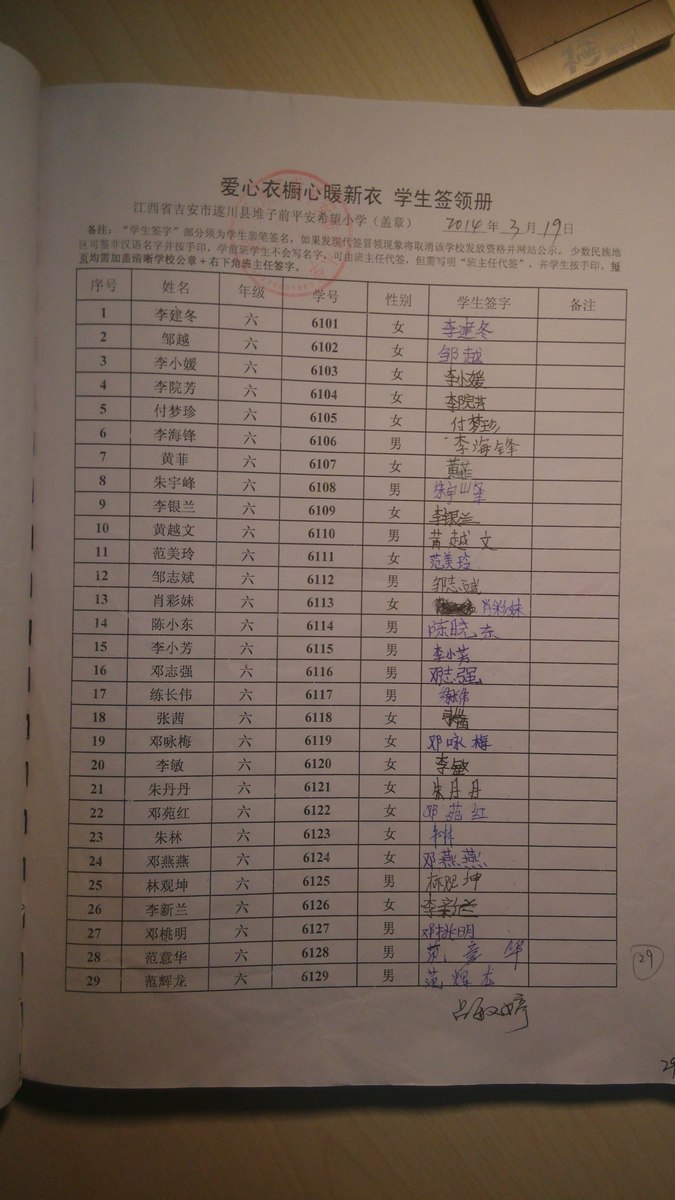 爱心衣橱心暖新衣 学生签领册
江西省吉安市遂川县堆子前平安希望小学（盖章） 2014年3月19日
备注：“学生签字”部分须为学生亲笔签名，如果发现代签冒领现象将取消该学校发放资格并网站公示。少数民族地
区可签非汉语名字并按手印，学前班学生不会写名字，可由班主任代签，但需写明“班主任代签”，并学生按手印。每
页均需加盖清晰学校公章＋右下角班主任签字。
序号 姓名 年级 学号 性别 学生签字 备注
1 李建冬 六 6101 女 李建冬
2 邹越 六 6102 女 邹越
3 李小媛 六 6103 女 李小媛
4 李院芳 六 6104 女 李院芳
5 付梦珍 六 6105 女 付梦珍
6 李海锋 六 6106 男 李海锋
7 黄菲 六 6107 女 黄菲
8 朱宇峰 六 6108 男 朱宇峰
9 李银兰 六 6109 女 李银兰
10 黄越文 六 6110 男 黄越文
11 范美玲 六 6111 女 范美玲
12 邹志斌 六 6112 男 邹志斌
13 肖彩妹 六 6113 女 肖彩妹
14 陈小东 六 6114 男 陈晓东
15 李小芳 六 6115 男 李小芳
16 邓志强 六 6116 男 邓志强
17 练长伟 六 6117 男 练长伟
18 张茜 六 6118 女
19 邓咏梅 六 6119 女 邓咏梅
20 李敏 六 6120 女 李敏
21 朱丹丹 六 6121 女 朱丹丹
22 邓苑红 六 6122 女 邓苑红
23 朱林 六 6123 女 朱林
24 邓燕燕 六 6124 女 邓燕燕
25 林观坤 六 6125 男 林观坤
26 李新兰 六 6126 女 李新兰
27 邓桃明 六 6127 男 邓桃明
28 范意华 六 6128 男 范意华
29 范辉龙 六 6129 男 范辉龙
29
29